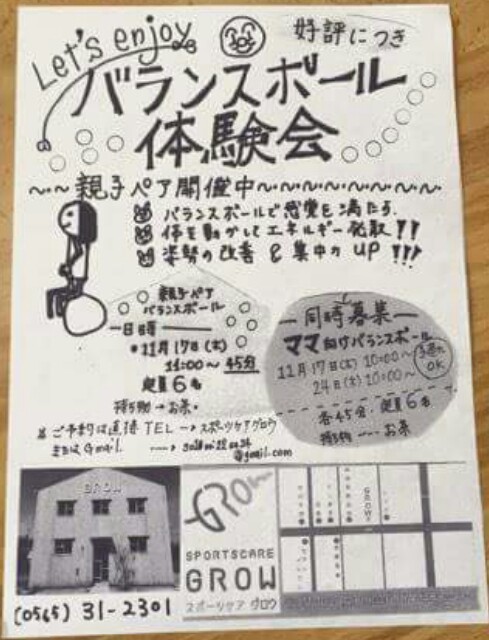 Let's enjoy
好評につき
バランスボール
体験会
親子ペア開催中
バランスボールで感覚を満たす.
体を動かしてエネルギー発散!!
姿勢の改善 & 集中力 UP!!!
親子ペア
バランスボール
日時
11月17日(木)
11:00~45分
定員6名
持ち物→お茶.
ご予約は直接 TEL → スポーツケアグロウ
または Gmail
@gmail.com
同時募集
ママ向けバランスボール
11月17日(木) 10:00~
24日(木) 10:00~
OK
各45分. 定員6名
持ち物 お茶
GROW
Grow
SPORTSCARE
GROW
スポーツケア グロウ
GROW
(0565) 31-2301